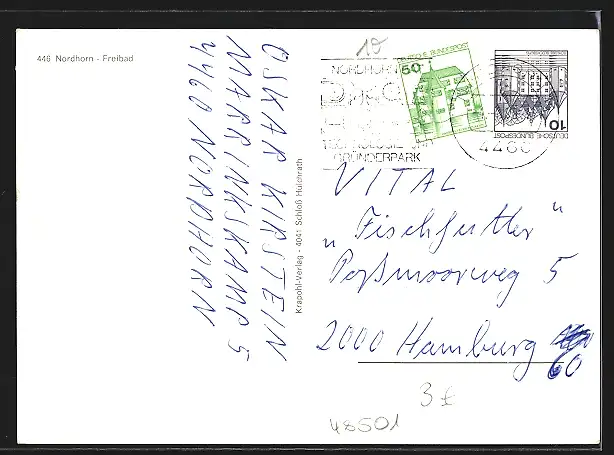 446 Nordhorn - Freibad
OSKAR KIRSTEIN
MARRINKSKAMP 5
4460 NORDHORN
Krapohl-Verlag - 4041 Schloß Hülchrath
10
NORDHORN
GRÜNDERPARK
4460
DEUTSCHE BUNDESPOST
50
DEUTSCHE BUNDESPOST
10
VITAL
„Fischfutter"
Poßmoorweg 5
2000 Hamburg 60
3 €
48501